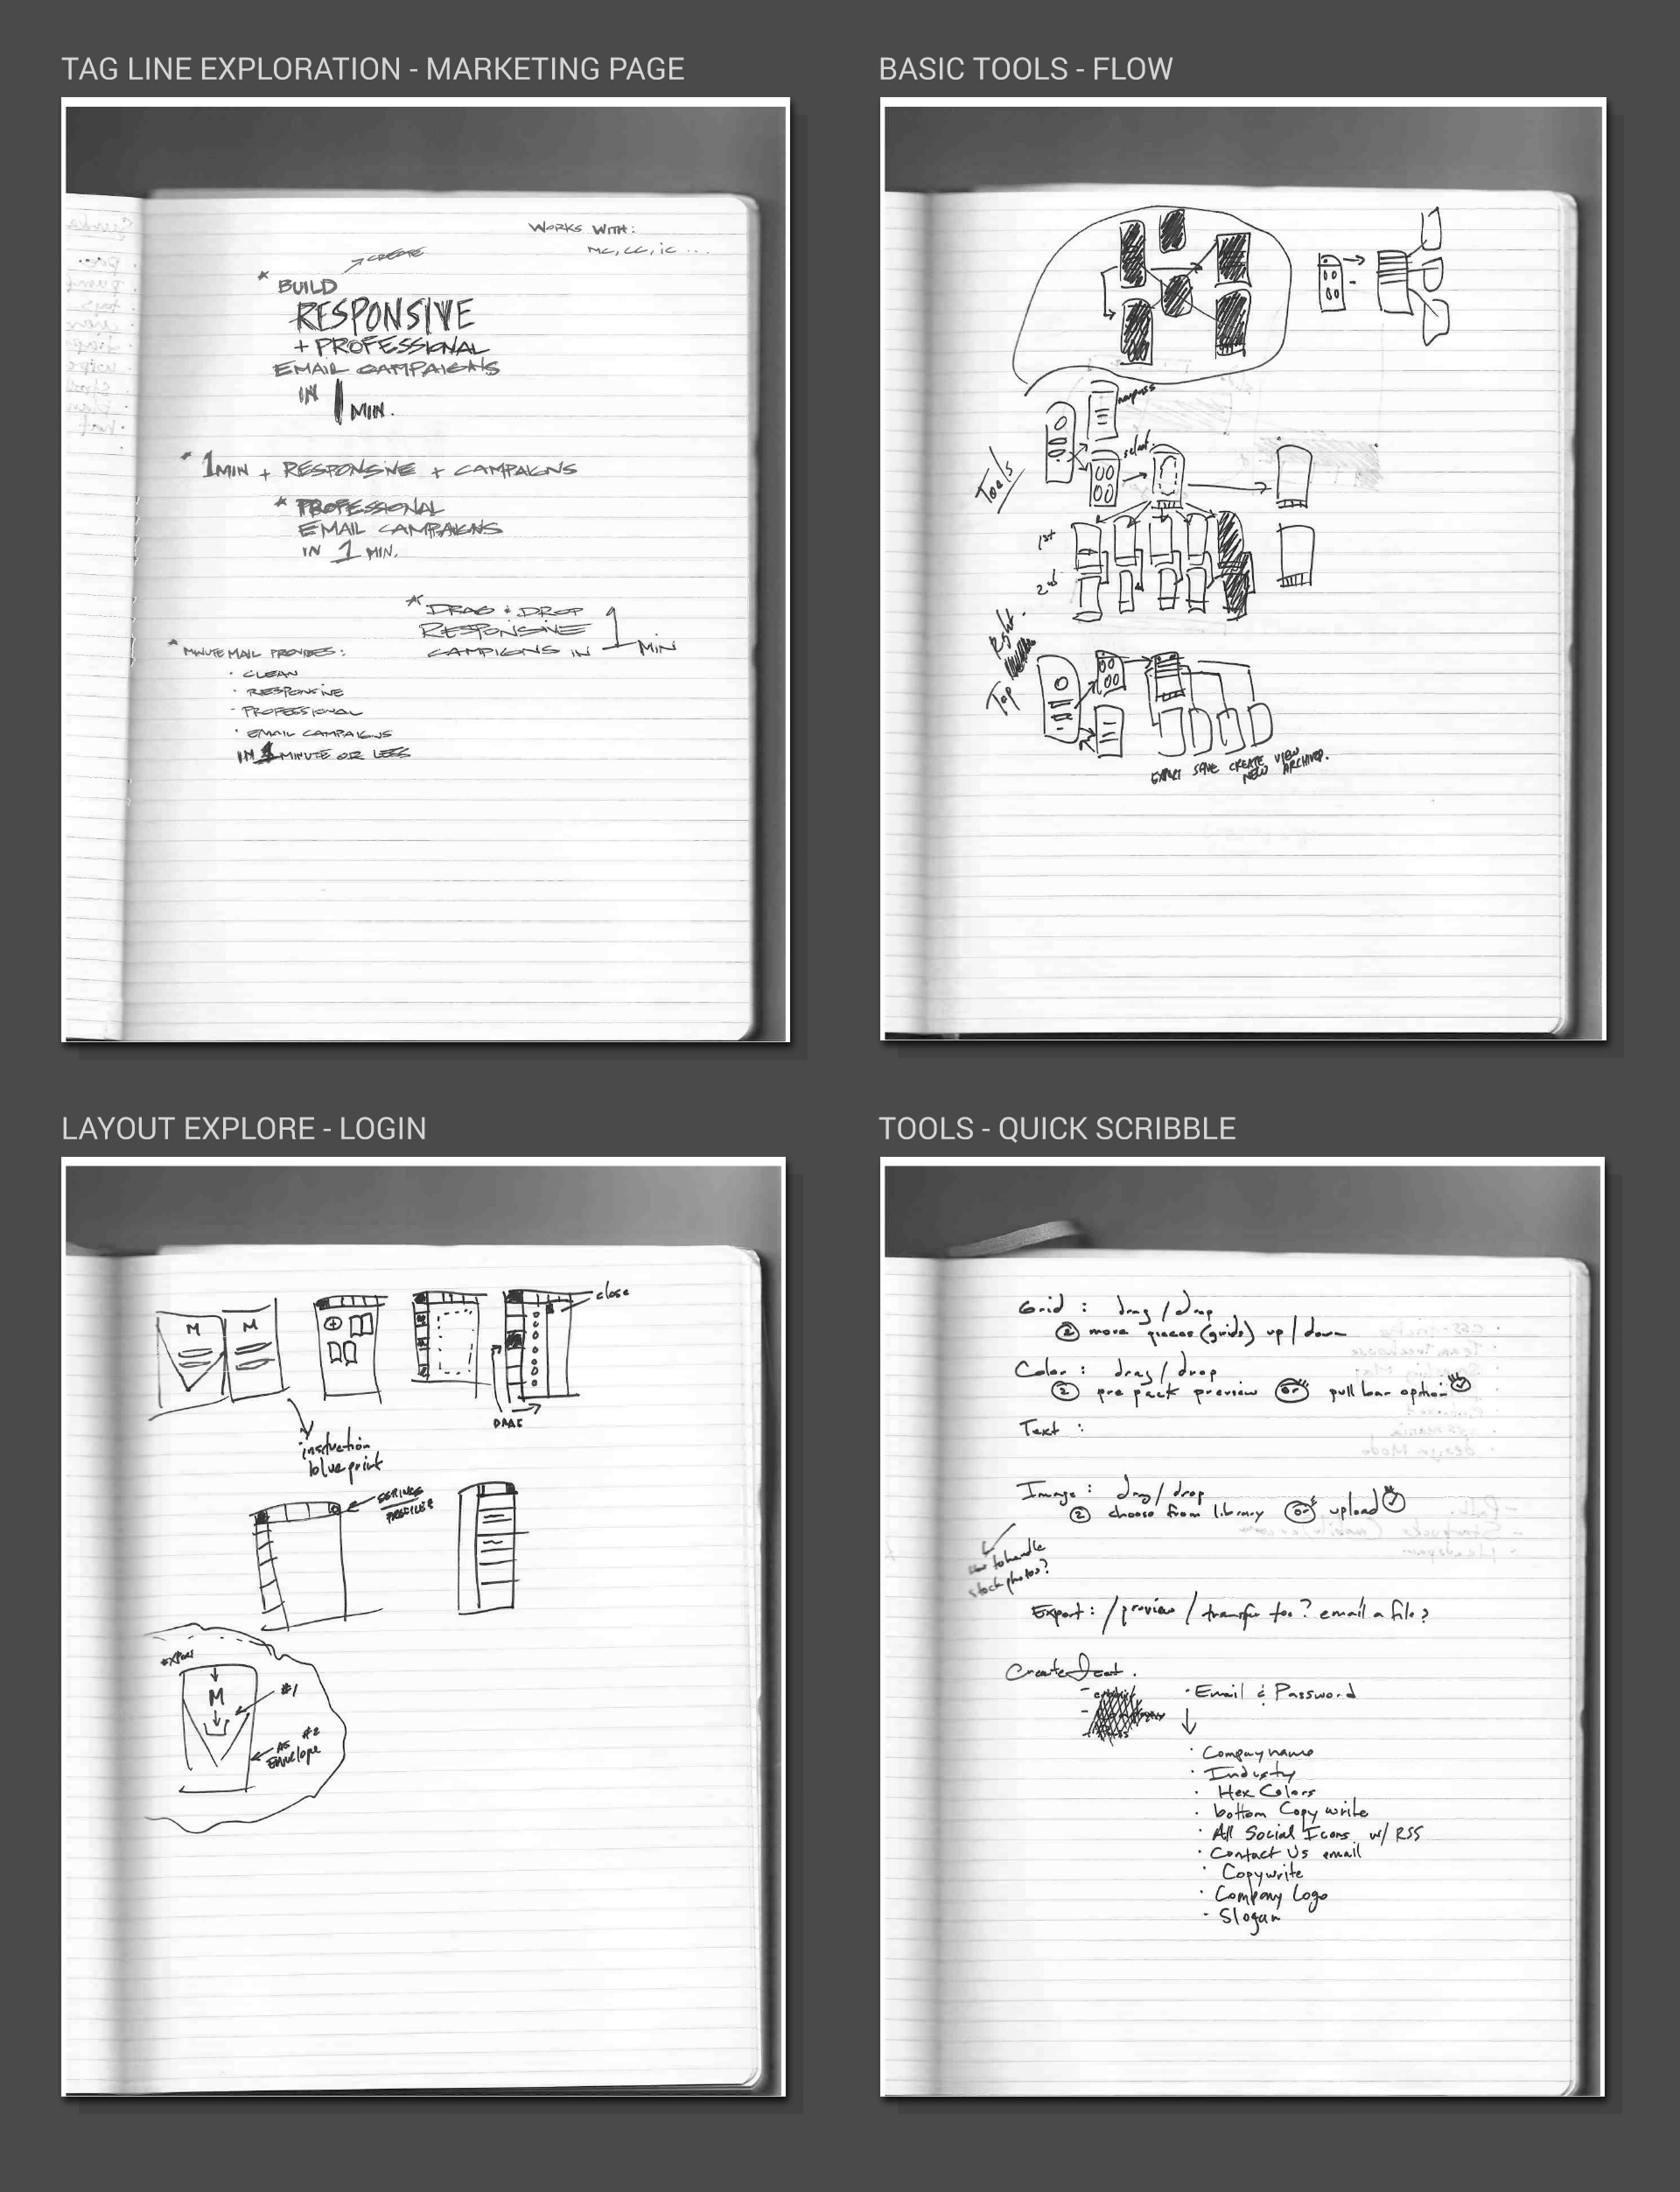 TAG LINE EXPLORATION - MARKETING PAGE
WORKS WITH:
MC, CC, iC ...
CREATE
* BUILD
RESPONSIVE
+ PROFESSIONAL
EMAIL CAMPAIGNS
IN 1 MIN.
* 1MIN + RESPONSIVE + CAMPAIGNS
* PROFESSIONAL
EMAIL CAMPAIGNS
IN 1 MIN.
* DRAG & DROP
RESPONSIVE
CAMPIGNS IN 1 MIN
* MINUTEMAIL PROVIDES:
• CLEAN
• RESPONSIVE
- PROFESSIONAL
• EMAIL CAMPAIGNS
IN 1 MINUTE OR LESS
BASIC TOOLS - FLOW
select
Tools
1st
2nd
Right
Top
EXPORT SAVE CREATE VIEW
NEW ARCHIVED.
LAYOUT EXPLORE - LOGIN
close
M M
DRAG
instruction
blueprint
EXPORT
M
#1
#2
AS
Envelope
TOOLS - QUICK SCRIBBLE
Grid : drag / drop
② move pieces (grids) up / down
Color : drag / drop
② pre pack preview or pull bar option
Text :
Image : drag / drop
② choose from library or upload
to handle
stock photos?
Export : / preview / transfer to? email a file?
Create
• Email & Password
• Company name
• Industry
• Hex Colors
• bottom Copy write
• All Social Icons w/ RSS
• Contact Us email
• Copywrite
• Company Logo
- Slogan